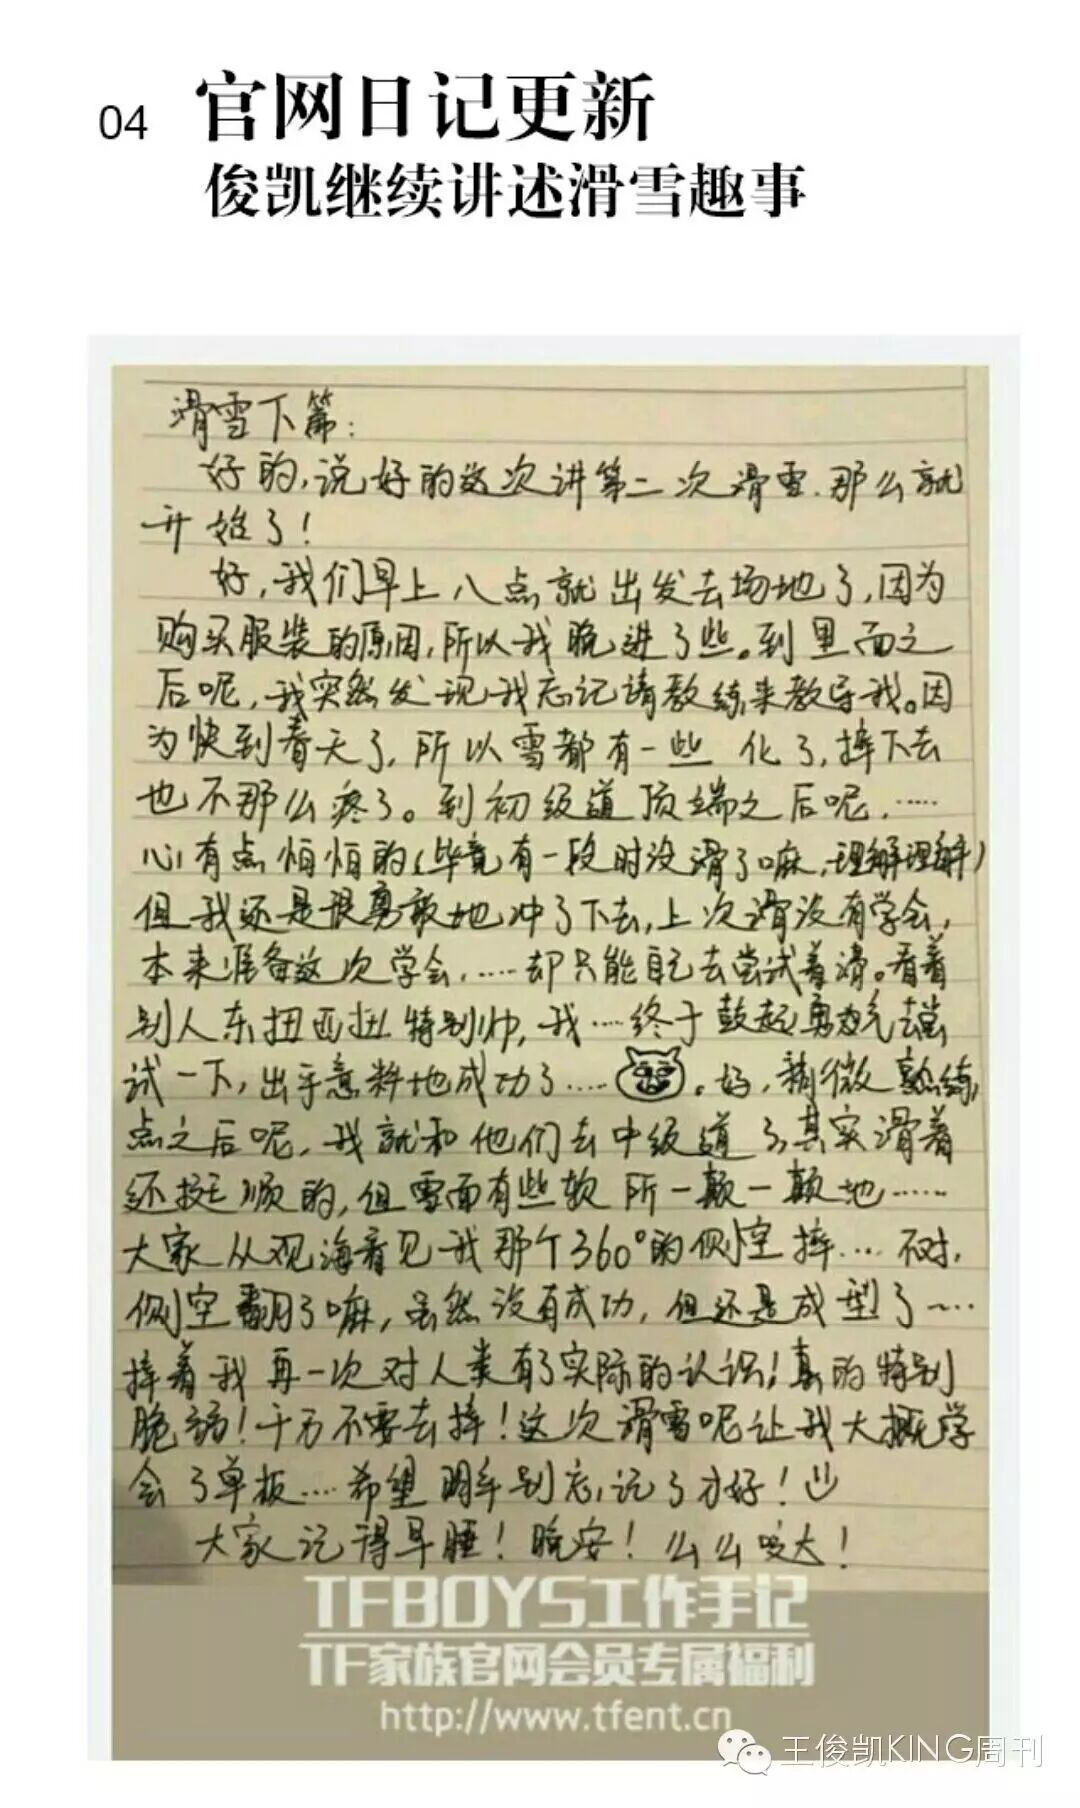 04
官网日记更新
俊凯继续讲述滑雪趣事
滑雪下篇:
好的,说好的这次讲第二次滑雪.那么就
开始了!
好,我们早上八点就出发去场地了,因为
购买服装的原因,所以我晚进了些。到里面之
后呢,我突然发现我忘记请教练来教导我。因
为快到春天了,所以雪都有一些 化了,摔下去
也不那么疼了。到初级道顶端之后呢.……
心有点怕怕的(毕竟有一段时没滑了嘛,理解理解)
但我还是很勇敢地冲了下去,上次滑没有学会,
本来准备这次学会,……却只能自己去尝试着滑。看着
别人东扭西扭特别帅,我……终于鼓起勇气去尝
试一下,出乎意料地成功了……。好,稍微熟练
点之后呢,我就和他们去中级道了,其实滑着
还挺顺的,但雪面有些软 所一颠一颠地……
大家从观海看见我那个360°的侧空摔……不对,
侧空翻了嘛,虽然没有成功,但还是成型了~……
摔着我再一次对人类有了实际的认识!真的特别
脆弱!千万不要去摔!这次滑雪呢让我大概学
会了单板……希望明年别忘记了才好!
大家记得早睡!晚安!么么哒大!
TFBOYS工作手记
TF家族官网会员专属福利
http://www.tfent.cn
王俊凯KING周刊